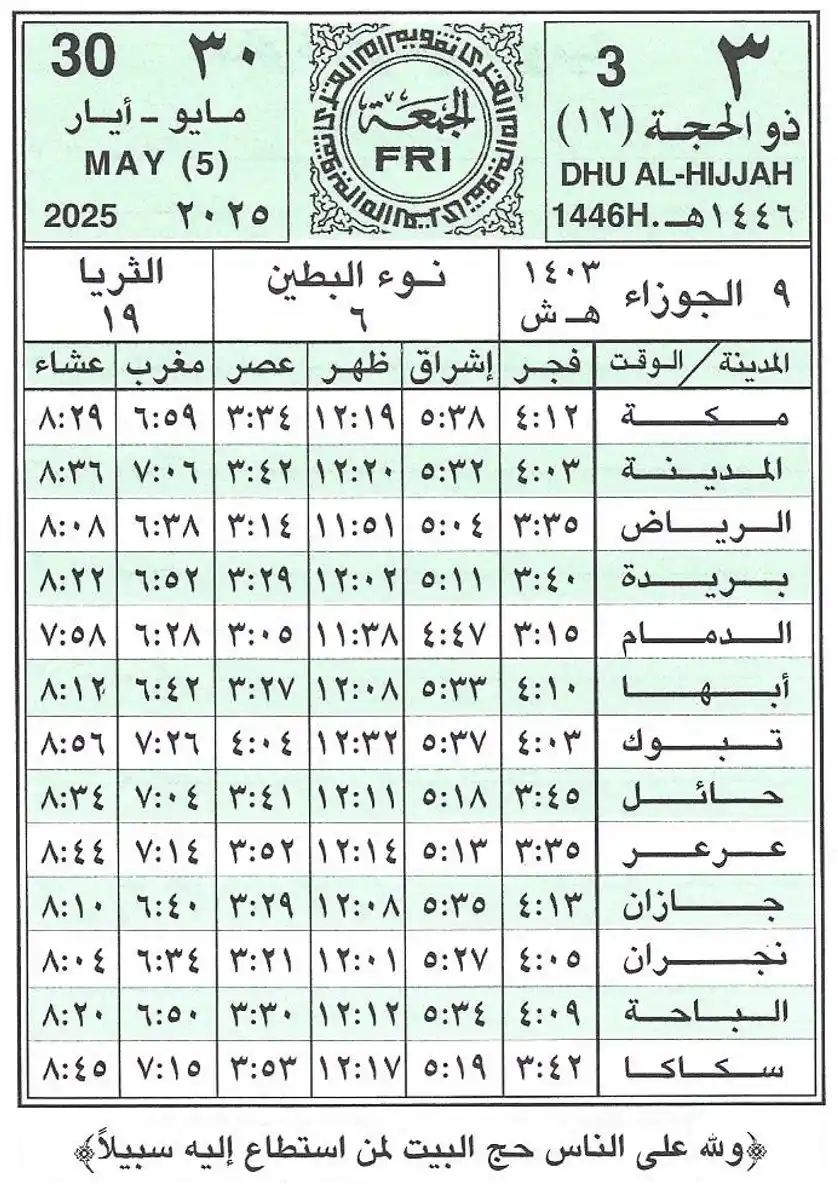 ٣ 3
ذو الحجة (١٢)
DHU AL-HIJJAH
١٤٤٦هـ 1446H.
الجمعة
FRI
٣٠ 30
مايو - أيار
MAY (5)
٢٠٢٥ 2025
٩ الجوزاء ١٤٠٣ هـ ش
نوء البطين
٦
الثريا
١٩
المدينة / الوقت فجر إشراق ظهر عصر مغرب عشاء
مكة ٤:١٢ ٥:٣٨ ١٢:١٩ ٣:٣٤ ٦:٥٩ ٨:٢٩
المدينة ٤:٠٣ ٥:٣٢ ١٢:٢٠ ٣:٤٢ ٧:٠٦ ٨:٣٦
الرياض ٣:٣٥ ٥:٠٤ ١١:٥١ ٣:١٤ ٦:٣٨ ٨:٠٨
بريدة ٣:٤٠ ٥:١١ ١٢:٠٢ ٣:٢٩ ٦:٥٢ ٨:٢٢
الدمام ٣:١٥ ٤:٤٧ ١١:٣٨ ٣:٠٥ ٦:٢٨ ٧:٥٨
أبها ٤:١٠ ٥:٣٣ ١٢:٠٨ ٣:٢٧ ٦:٤٢ ٨:١٢
تبوك ٤:٠٣ ٥:٣٧ ١٢:٣٢ ٤:٠٤ ٧:٢٦ ٨:٥٦
حائل ٣:٤٥ ٥:١٨ ١٢:١١ ٣:٤١ ٧:٠٤ ٨:٣٤
عرعر ٣:٣٥ ٥:١٣ ١٢:١٤ ٣:٥٢ ٧:١٤ ٨:٤٤
جازان ٤:١٣ ٥:٣٥ ١٢:٠٨ ٣:٢٩ ٦:٤٠ ٨:١٠
نجران ٤:٠٥ ٥:٢٧ ١٢:٠١ ٣:٢١ ٦:٣٤ ٨:٠٤
الباحة ٤:٠٩ ٥:٣٤ ١٢:١٢ ٣:٣٠ ٦:٥٠ ٨:٢٠
سكاكا ٣:٤٢ ٥:١٩ ١٢:١٧ ٣:٥٣ ٧:١٥ ٨:٤٥
﴿ولله على الناس حج البيت لمن استطاع إليه سبيلاً﴾